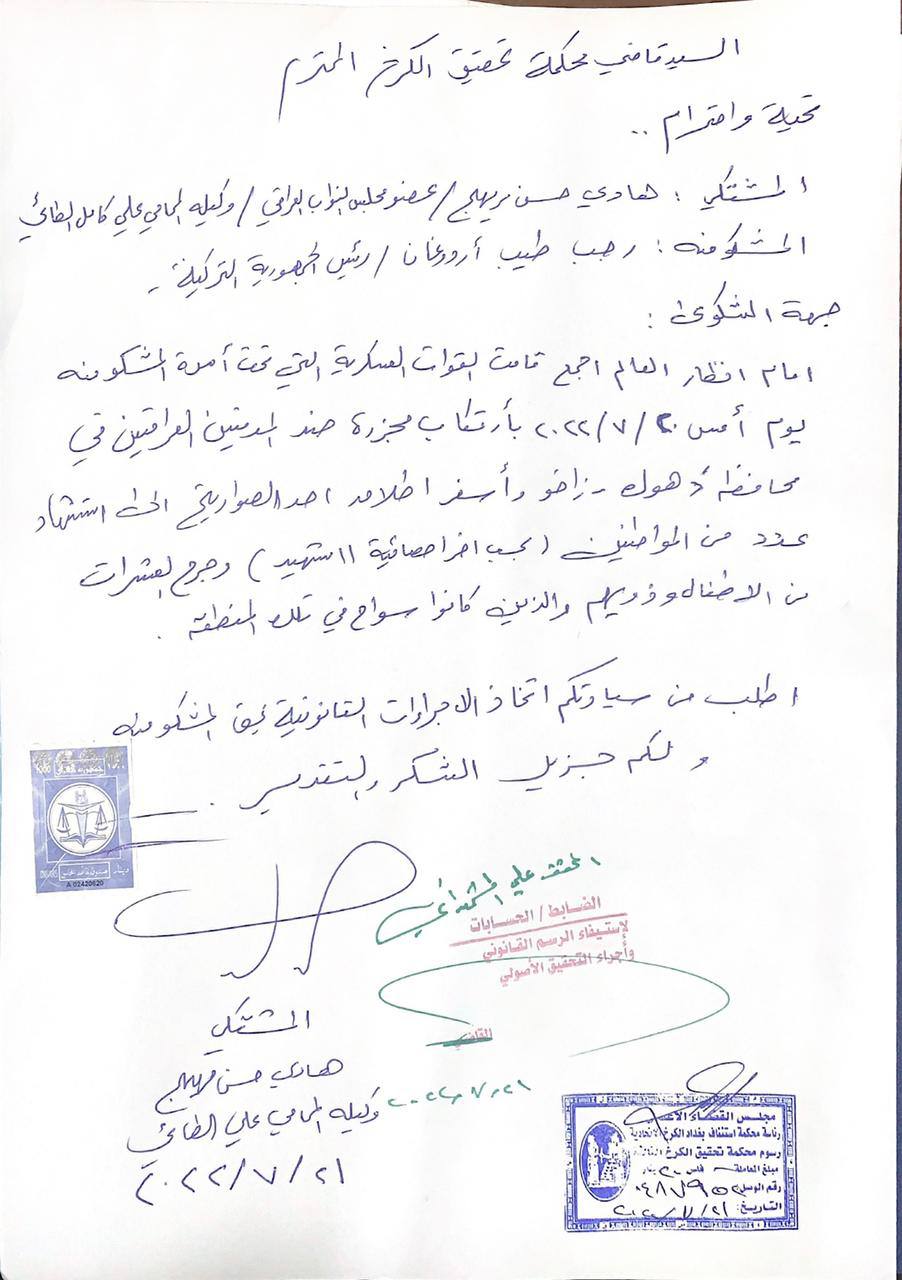 السيد قاضي محكمة تحقيق الكرخ المحترم
تحية واحترام ..
المشتكي : هادي حسن بريهج / عضو مجلس النواب العراقي / وكيله المحامي علي كامل الطائي
المشكو منه : رجب طيب أردوغان / رئيس الجمهورية التركية .
جهة الشكوى :
امام انظار العالم اجمع قامت القوات العسكرية التي تحت أمرة المشكو منه
يوم أمس ٢٠٢٢/٧/٢٠ بأرتكاب مجزرة ضد المدنين العراقين في
محافظة دهوك - زاخو وأسفر اطلاق احد الصواريخ الى استشهاد
عدد من المواطنين ( بحسب اخر احصائية ١١ شهيد ) وجرح العشرات
من الاطفال وذويهم والذين كانوا سواح في تلك المنطقة .
اطلب من سيادتكم اتخاذ الاجراءات القانونية بحق المشكو منه
ولكم جزيل الشكر والتقدير .
A 02420620
المحقق علي
الضابط / الحسابات
لاستيفاء الرسم القانوني
وأجراء التحقيق الأصولي
القاضي
٢٠٢٢/٧/٢١
المشتكي
هادي حسن بريهج
وكيله المحامي علي الطائي
٢٠٢٢/٧/٢١
مجلس القضاء الاعلى
رئاسة محكمة استئناف بغداد الكرخ الاتحادية
رسوم محكمة تحقيق الكرخ الثالثة
مبلغ المعاملة فلس دينار
رقم الوصل
التاريخ: